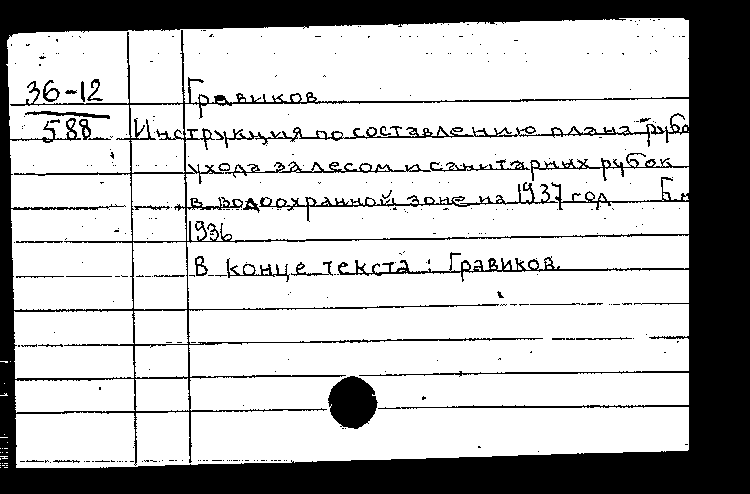 36-12
588
Гравиков
Инструкция по составлению плана рубо
ухода за лесом и санитарных рубок
в водоохранной зоне на 1937 год Б.м
1936
В конце текста: Гравиков.